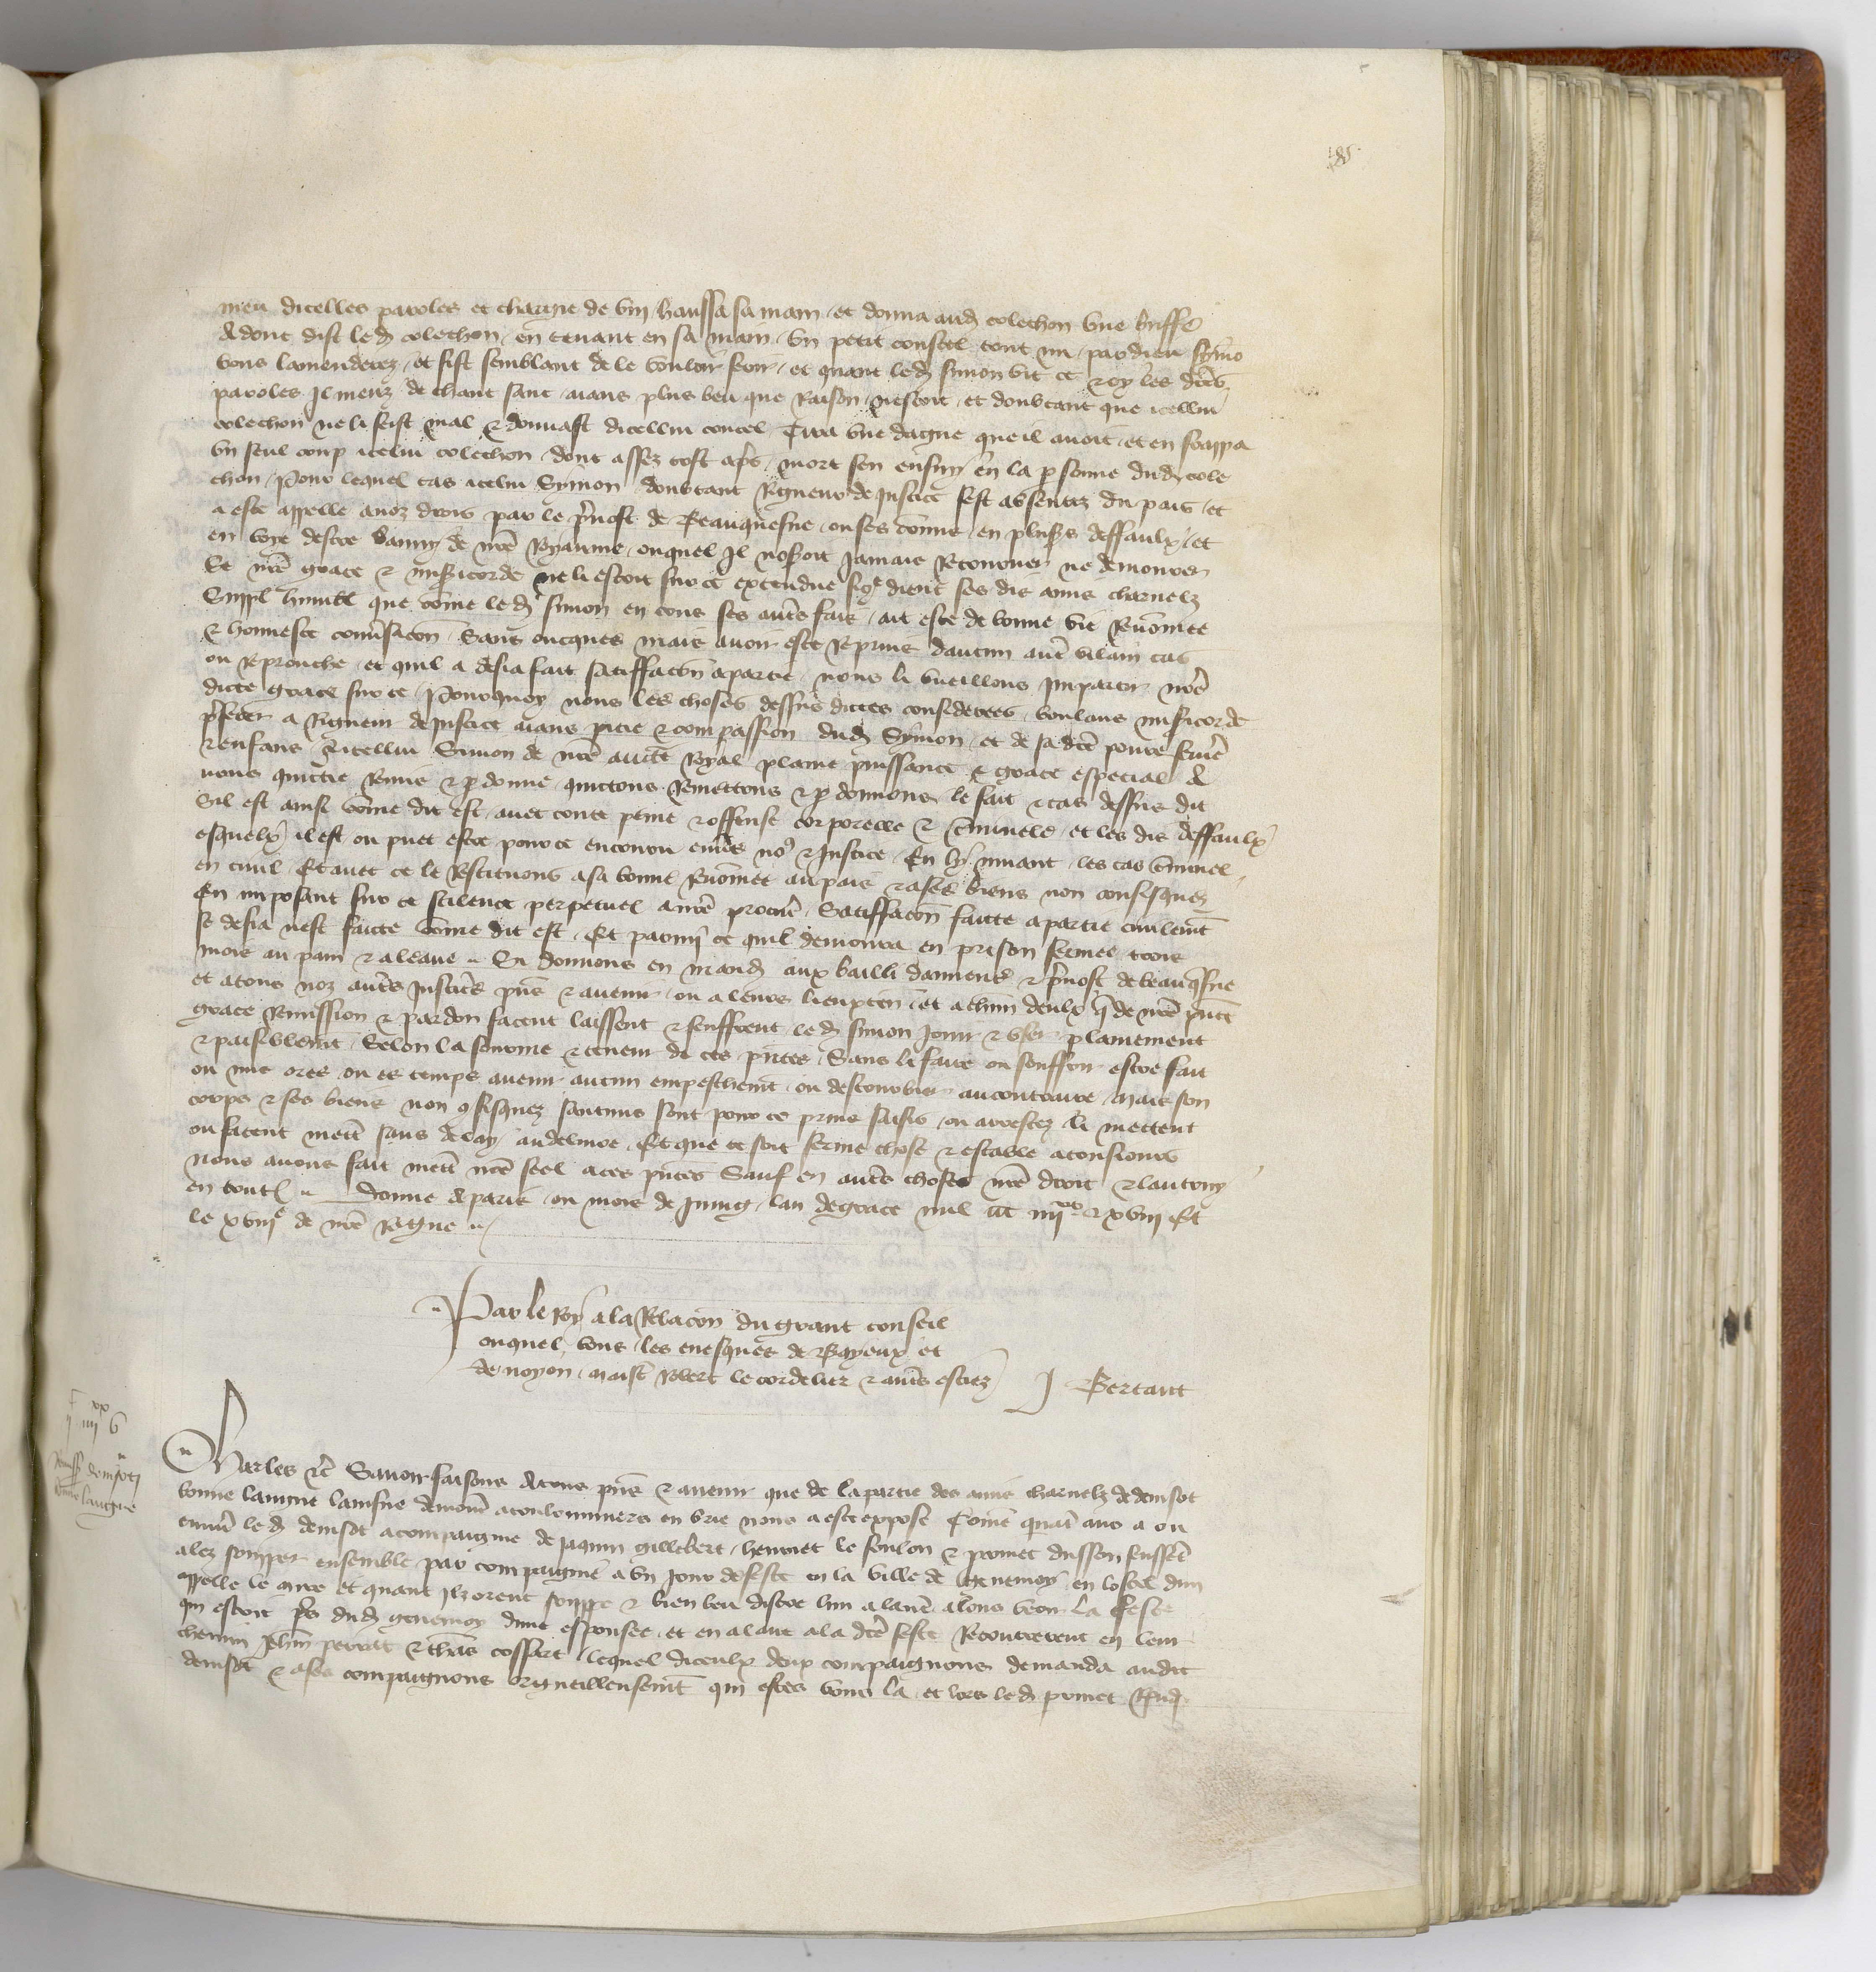 185
meu dicelles paroles et chargie de vin haussa sa main et donna aud colechon une buffe
Adont dist led colechon en tenant en sa main un petit coustel tout nu par dieu symo
vous lamenderez et fist semblant de le vouloir ferir et quant led simon vit ce et oy les dces
paroles Il meuz de chaut sanc aians plus beu que Raison nestoit et doubtant que icellui
colechon ne li feist mal & donnast dicellui coutel Tira une dague que il avoit et en frappa
un seul coup icelui colechon dont assez tost apres mort sen ensuy en la psonne dud cole
chon Pour lequel cas icelui Symon doubtant Rigueur de Justice sest absentez du pais et
a este appelle a noz drois par le pvost de Beauquesne ou ses comis en plusrs deffaulx et
en voye destre banny de nre Royaume ouquel Il noseroit Jamais Retourner ne demourer
Se nre grace & misicorde ne li estoit sur ce extendue sicoe dient ses dis amis charnelz
Suppl humbl que come led simon en tous ses autes fais ait este de bonne vie Renomee
& honneste conversacon Sans oncques mais avoir este Reprins daucun aute vilain cas
ou Reprouche et quil a desia fait satiffacon a partie nous li vueillons Impartir nre
dicte grace sur ce Pourquoy nous les choses dessus dictes considerees voulans misicorde
pferer a Rigueur de Justice aians pitie & compassion dud Symon et de sa dce povre feme
& enfans A icellui Simon de nre aucte Royal plaine puissance & grace especial A
vons quictie Remis & pdonne quictons Remettons & pdonnons le fait & cas dessus dit
Sil est ainsi come dit est avec toute peine & offense corporelle & criminele et les dis deffaulx
esquelx il est ou puet estre pour ce encouru envers nos & Justice En muant les cas criminel
en civil Et avec ce le Restituons a sa bonne Renomee au pais & a ses biens non confisquez
En imposant sur ce scilence perpetuel a nre procur Satiffacon faicte a partie civilemt
se desia nest faicte come dit est Et parmi ce quil demoura en prison fermee trois
mois au pain & a leaue Si donnons en mand aux bailli damiens & pvost de beauqsne
et a tous noz autes Justiciers pns & avenir ou a leurs lieuxten et a chun deulx q de nre pnte
grace Remission & pardon facent laissent & seuffrent led simon Jouir & user plainement
& paisiblemt Selon la fourme & teneur de ces pntes Sans li faire ou souffrir estre fait
ou mis ores ou es temps avenir aucun empeschemt ou destourbier au contraire Mais son
corps & ses biens non confisquez saucuns sont pour ce prins saisis ou arrestez li mettent
ou facent mettre sans delay au delivre Et que ce soit ferme chose & estable a tousiours
nous avons fait mettre nre seel a ces pntes Sauf en autes choses nre droit & lautruy
en toutes donne A paris ou mois de Juing lan de grace mil ccc iiiixx & xviii Et
le xviiie de nre Regne
Par le Roy a la Relacon du grant conseil
ouquel vous les evesques de Bayeux et
de noyon maistre Robert le cordelier & autes estiez J Bertaut
xx
iiii 6
Charles &c Savoir faisons A tous pns & avenir que de la partie des amis charnelz de denisot
bonne langue lamsne demour a coulommiers en brie nous a este expose Come quatre ans a ou
environ led denisot acompaignie de Jaquin gillebert henriet le foulon & perinet dusson feussent
alez soupper ensemble par compaignie a un Jour de feste en la ville de Genemoy en lostel dun
appelle le mire et quant Ilz orent souppe & bien beu distre lun a lautre alons veoir la feste
qui estoit pres dud genemoy dune espousee et en alant a la dce feste Rencontrerent en leur
chemin Jehan perrot & thomas cossart lequel diceulx deux compaignons demanda audit
denisot & a ses compaignons orgueilleusemt qui estes vous la et lors led perinet Rend